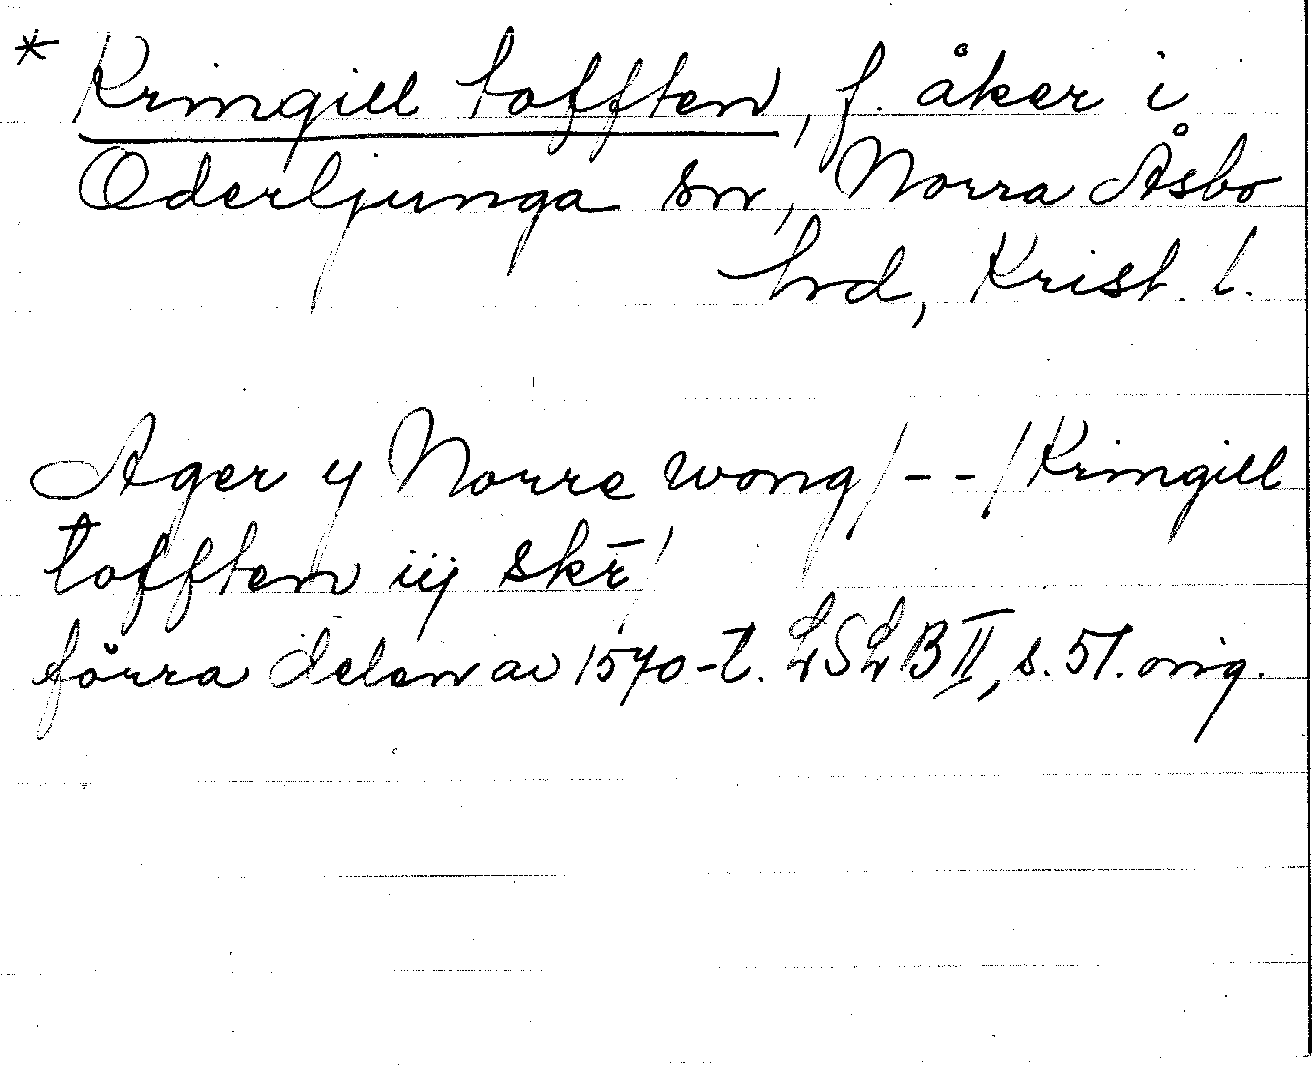 * Kringill tofften, f. åker i
Oderljunga sn, Norra Åsbo
hd, Krist. l.
Ager y Norre wong /--/ Kringill
tofften iij skr̄
förra delen av 1570-t. LSLB II, s. 51. orig.